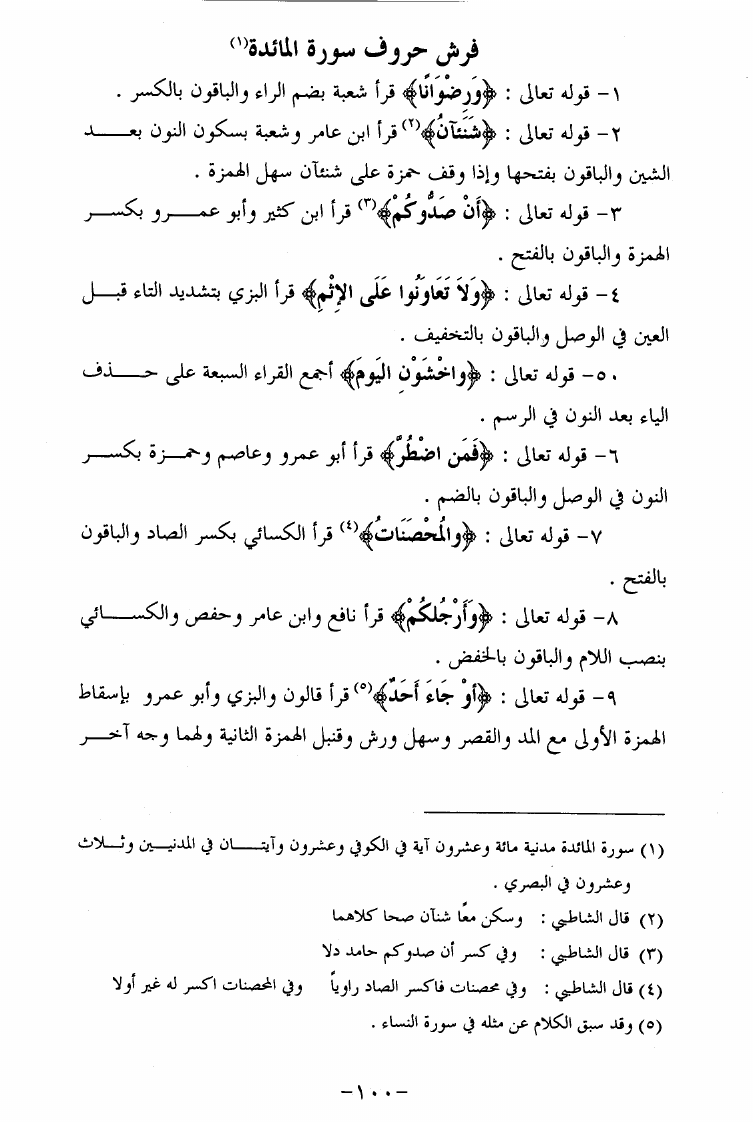 فرش حروف سورة المائدة(١)
١- قوله تعالى : ﴿وَرِضْوَانًا﴾ قرأ شعبة بضم الراء والباقون بالكسر .
٢- قوله تعالى : ﴿شَنَئَآنُ﴾(٢) قرأ ابن عامر وشعبة بسكون النون بعد
الشين والباقون بفتحها وإذا وقف حمزة على شنئآن سهل الهمزة .
٣- قوله تعالى : ﴿أَنْ صَدُّوكُمْ﴾(٣) قرأ ابن كثير وأبو عمرو بكسر
الهمزة والباقون بالفتح .
٤- قوله تعالى : ﴿وَلاَ تَعَاوَنُوا عَلَى الإِثْمِ﴾ قرأ البزي بتشديد التاء قبل
العين في الوصل والباقون بالتخفيف .
٥- قوله تعالى : ﴿واخْشَوْنِ اليَومَ﴾ أجمع القراء السبعة على حذف
الياء بعد النون في الرسم .
٦- قوله تعالى : ﴿فَمَن اضْطُرَّ﴾ قرأ أبو عمرو وعاصم وحمزة بكسر
النون في الوصل والباقون بالضم .
٧- قوله تعالى : ﴿والمُحْصَنَاتُ﴾(٤) قرأ الكسائي بكسر الصاد والباقون
بالفتح .
٨- قوله تعالى : ﴿وَأَرْجُلَكُمْ﴾ قرأ نافع وابن عامر وحفص والكسائي
بنصب اللام والباقون بالخفض .
٩- قوله تعالى : ﴿أوْ جَاءَ أَحَدٌ﴾(٥) قرأ قالون والبزي وأبو عمرو بإسقاط
الهمزة الأولى مع المد والقصر وسهل ورش وقنبل الهمزة الثانية ولهما وجه آخر
(١) سورة المائدة مدنية مائة وعشرون آية في الكوفي وعشرون وآيتان في المدنيين وثلاث
وعشرون في البصري .
(٢) قال الشاطبي : وسكن معًا شنآن صحا كلاهما
(٣) قال الشاطبي : وفي كسر أن صدوكم حامد دلا
(٤) قال الشاطبي : وفي محصنات فاكسر الصاد راوياً وفي المحصنات اكسر له غير أولا
(٥) وقد سبق الكلام عن مثله في سورة النساء .
-١٠٠-